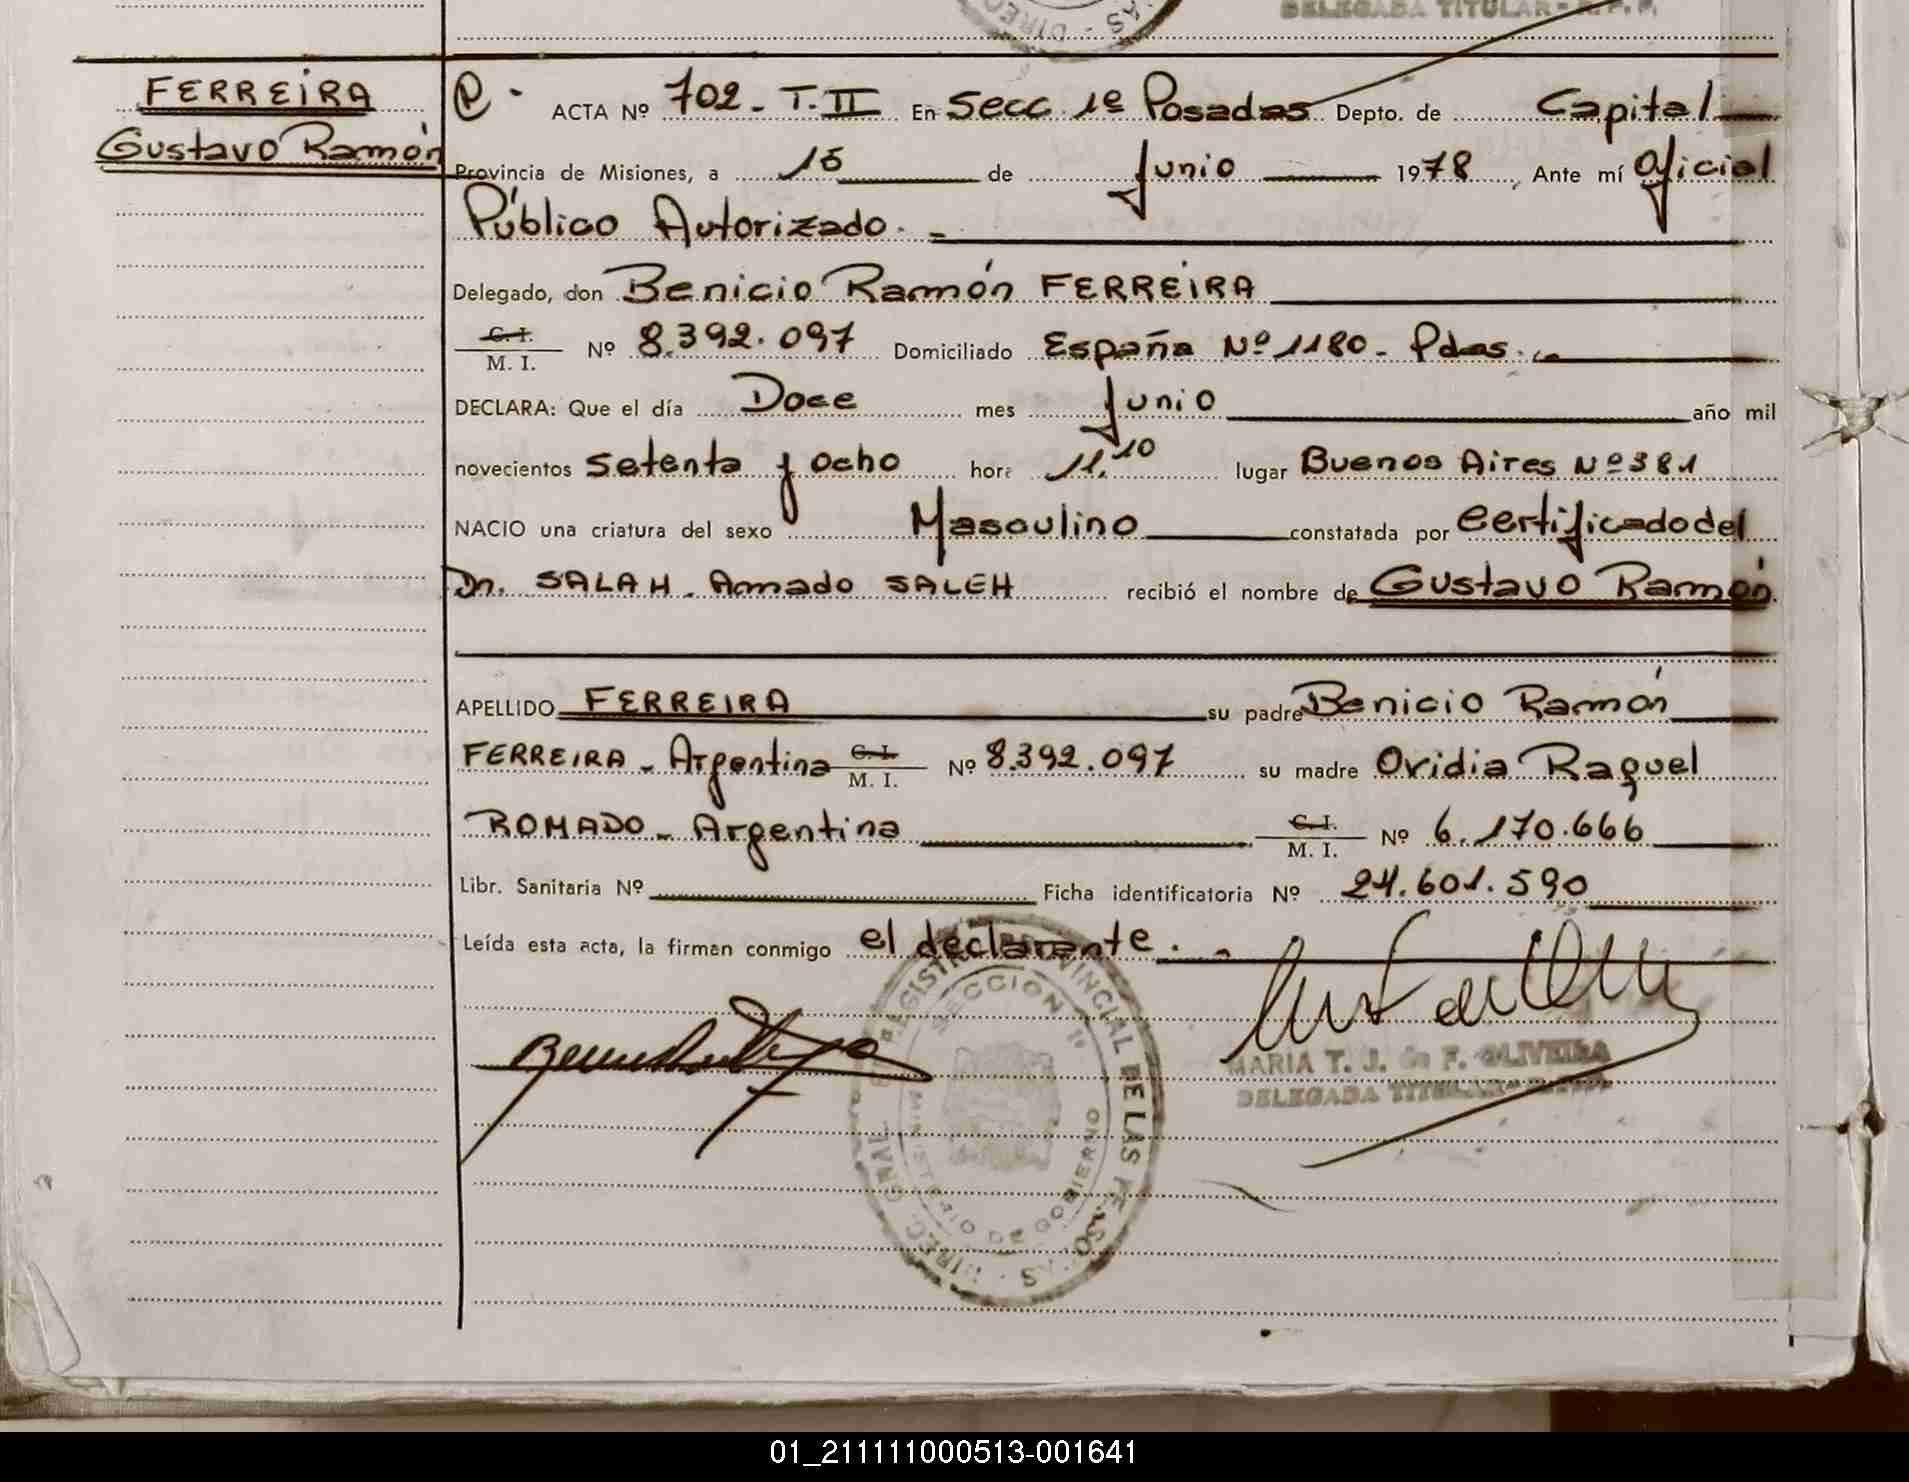 DELEGADA TITULAR - R.P.P.
DIREC
AS
FERREIRA
Gustavo Ramón
ACTA Nº 702 - T. II En Secc 1º Posadas Depto. de Capital
Provincia de Misiones, a 15 de Junio 1978, Ante mí Oficial
Público Autorizado. -
Delegado, don Benicio Ramón FERREIRA
C. I.
M. I. Nº 8.392.097 Domiciliado España Nº 1180 - Pdas. -
DECLARA: Que el día Doce mes Junio año mil
novecientos setenta y ocho hora 11.10 lugar Buenos Aires Nº 381
NACIO una criatura del sexo Masculino constatada por certificado del
Dr. SALAH. Amado SALEH recibió el nombre de Gustavo Ramón.
APELLIDO FERREIRA su padre Benicio Ramón
FERREIRA - Argentina C. I. M. I. Nº 8.392.097 su madre Ovidia Raquel
ROMADO - Argentina C. I. M. I. Nº 6.170.666
Libr. Sanitaria Nº Ficha identificatoria Nº 24.601.590
Leída esta acta, la firman conmigo el declarante. -
MARIA T. J. de F. OLIVEIRA
DELEGADA TITULAR
DIREC. GRAL. REGISTRO PROVINCIAL DE LAS PERSONAS
SECCION 1º
MINISTERIO DE GOBIERNO
01_211111000513-001641